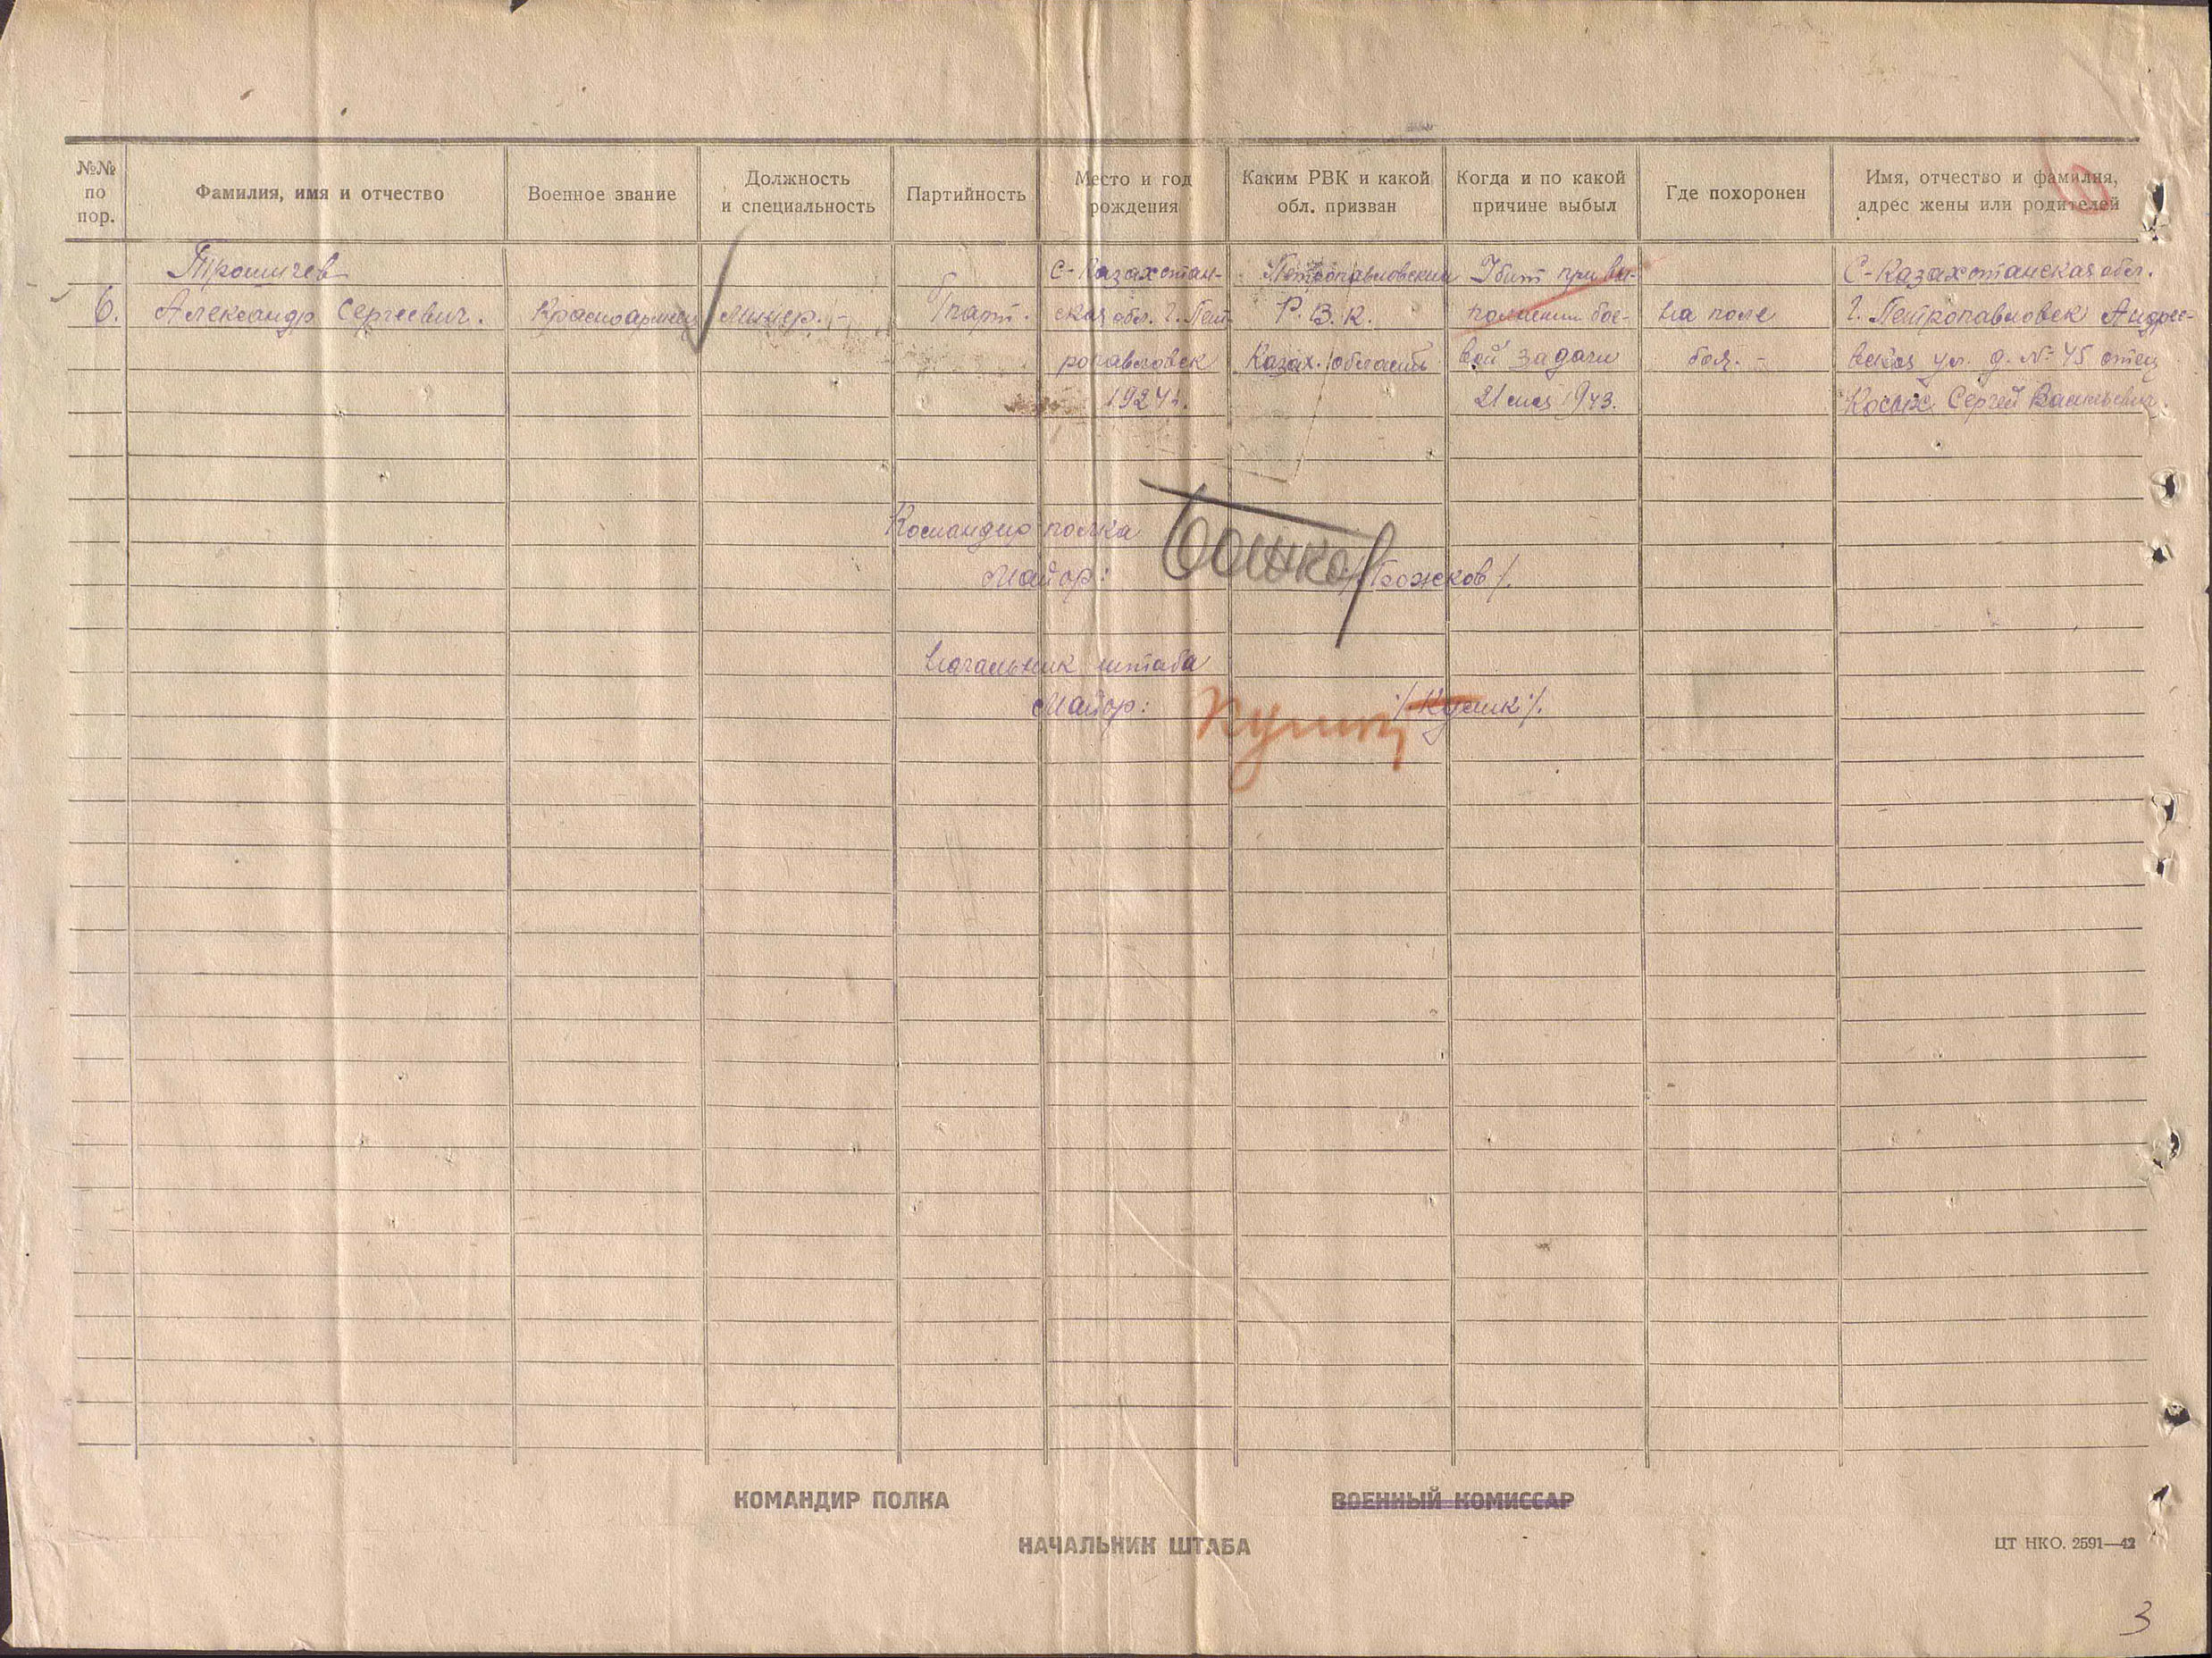 №№ по пор.
Фамилия, имя и отчество
Военное звание
Должность и специальность
Партийность
Место и год рождения
Каким РВК и какой обл. призван
Когда и по какой причине выбыл
Где похоронен
Имя, отчество и фамилия, адрес жены или родителей
6.
Александр Сергеевич.
Красноармеец
Минер. -
б/парт.
С-Казахстан-
ская обл. г. Пет-
ропавловск
1924г.
Петропавловский
Р.В.К.
Казах. область
Убит при вы-
полнении бое-
вой задачи
21 мая 1943.
на поле
боя. -
С-Казахстанская обл.
г. Петропавловск Андрее-
вская ул. д. № 45 отец
Сергей Васильевич.
Командир полка
Майор: /Божков/.
Начальник штаба
Майор: /Кулик/.
КОМАНДИР ПОЛКА
ВОЕННЫЙ КОМИССАР
НАЧАЛЬНИК ШТАБА
ЦТ НКО. 2591—42
3